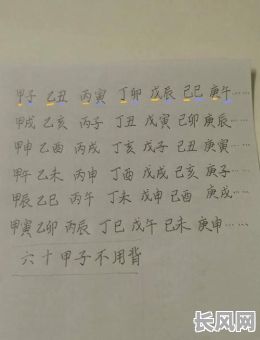 甲子 乙丑 丙寅 丁卯 戊辰 己巳 庚午……
甲戌 乙亥 丙子 丁丑 戊寅 己卯 庚辰……
甲申 乙酉 丙戌 丁亥 戊子 己丑 庚寅……
甲午 乙未 丙申 丁酉 戊戌 己亥 庚子……
甲辰 乙巳 丙午 丁未 戊申 己酉 庚戌……
甲寅 乙卯 丙辰 丁巳 戊午 己未 庚申……
六十甲子不用背
长风网